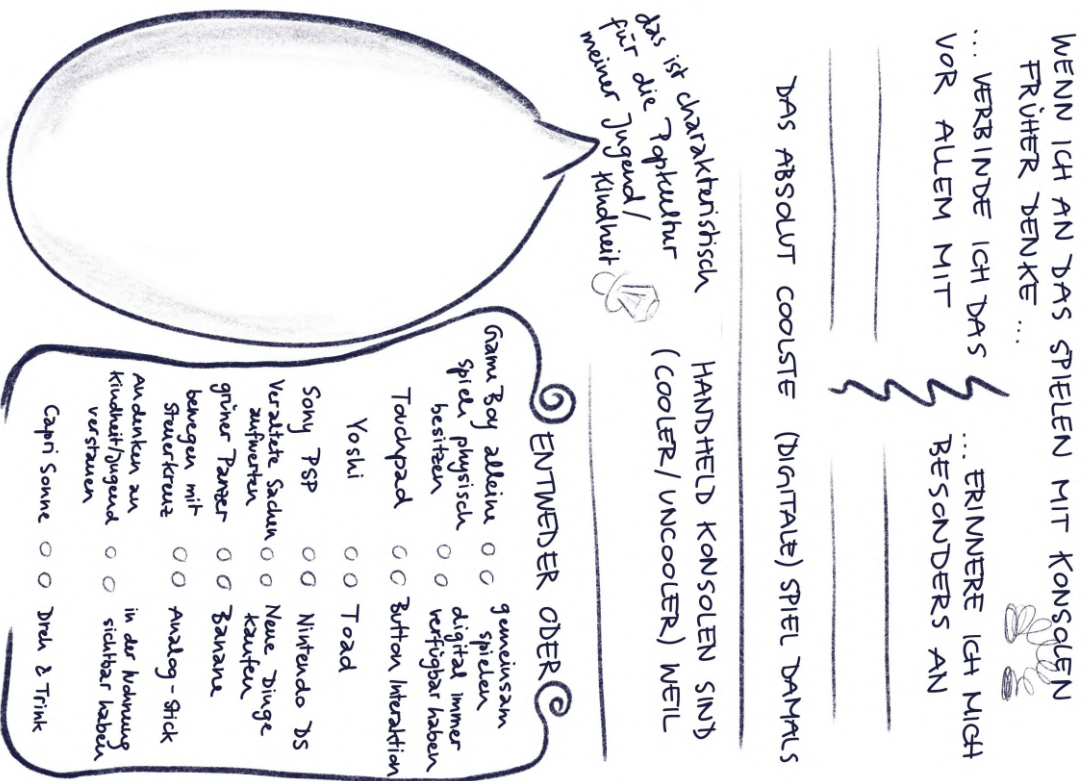 WENN ICH AN DAS SPIELEN MIT KONSOLEN
FRÜHER DENKE ...
... VERBINDE ICH DAS
VOR ALLEM MIT
... ERINNERE ICH MICH
BESONDERS AN
DAS ABSOLUT COOLSTE (DIGITALE) SPIEL DAMALS
HANDHELD KONSOLEN SIND
(COOLER/UNCOOLER) WEIL
das ist charakteristisch
für die Popkultur
meiner Jugend/
Kindheit
ENTWEDER ODER
Game Boy alleine
gemeinsam
spielen
Spiel physisch
besitzen
digital immer
verfügbar haben
Touchpad
Button Interaktion
Yoshi
Toad
Sony PSP
Nintendo DS
Veraltete Sachen
aufwerten
Neue Dinge
kaufen
grüner Panzer
Banane
bewegen mit
Steuerkreuz
Analog-Stick
Andenken an
Kindheit/Jugend
verstauen
in der Wohnung
sichtbar haben
Capri Sonne
Dreh & Trink